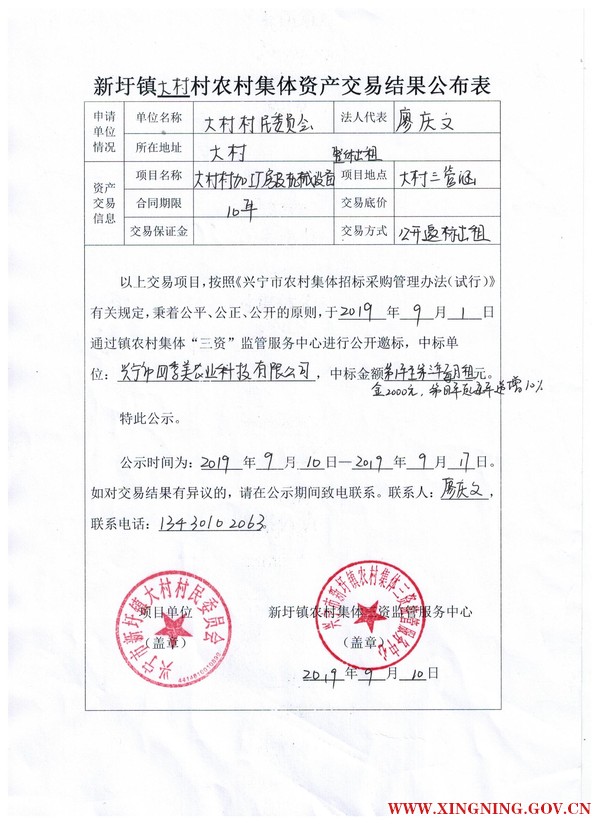 新圩镇大村村农村集体资产交易结果公布表
申请单位情况 单位名称 大村村民委员会 法人代表 廖庆文
所在地址 大村
资产交易信息 项目名称 大村村加工厂房及机械设备整体出租 项目地点 大村三管涵
合同期限 10年 交易底价
交易保证金 交易方式 公开邀标出租
以上交易项目，按照《兴宁市农村集体招标采购管理办法（试行）》
有关规定，秉着公平、公正、公开的原则，于2019年9月1日
通过镇农村集体“三资”监管服务中心进行公开邀标，中标单
位：兴宁市四季美农业科技有限公司，中标金额第1年至第3年每月租元。
金2000元，第四年起每年递增10%
特此公示。
公示时间为：2019年9月10日—2019年9月17日。
如对交易结果有异议的，请在公示期间致电联系。联系人：廖庆文，
联系电话：13430102063。
项目单位 新圩镇农村集体三资监管服务中心
（盖章） （盖章）
2019年9月10日
兴宁市新圩镇大村村民委员会
兴宁市新圩镇农村集体三资监管服务中心
WWW.XINGNING.GOV.CN